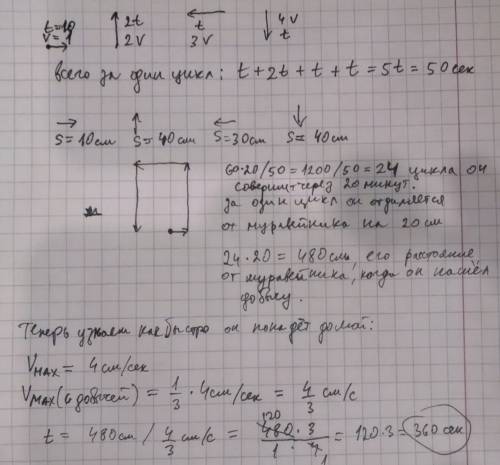 t=10 2t t 4V
V=1 2V 3V t
всего за один цикл: t+2t+t+t=5t=50 сек
S=10см S=40см S=30см S=40см
60·20/50=1200/50=24 цикла он
совершит через 20 минут.
за один цикл он отдаляется
от муравейника на 20 см
24·20=480см, его расстояние
от муравейника, когда он нашёл
добычу.
Теперь узнаем как быстро он попадёт домой:
VMAX = 4 см/сек
VMAX(с добычей) = 1/3 · 4см/сек = 4/3 см/с
t = 480см / 4/3 см/с = 480·3 / 1·4 = 120·3 = 360 сек
120
1